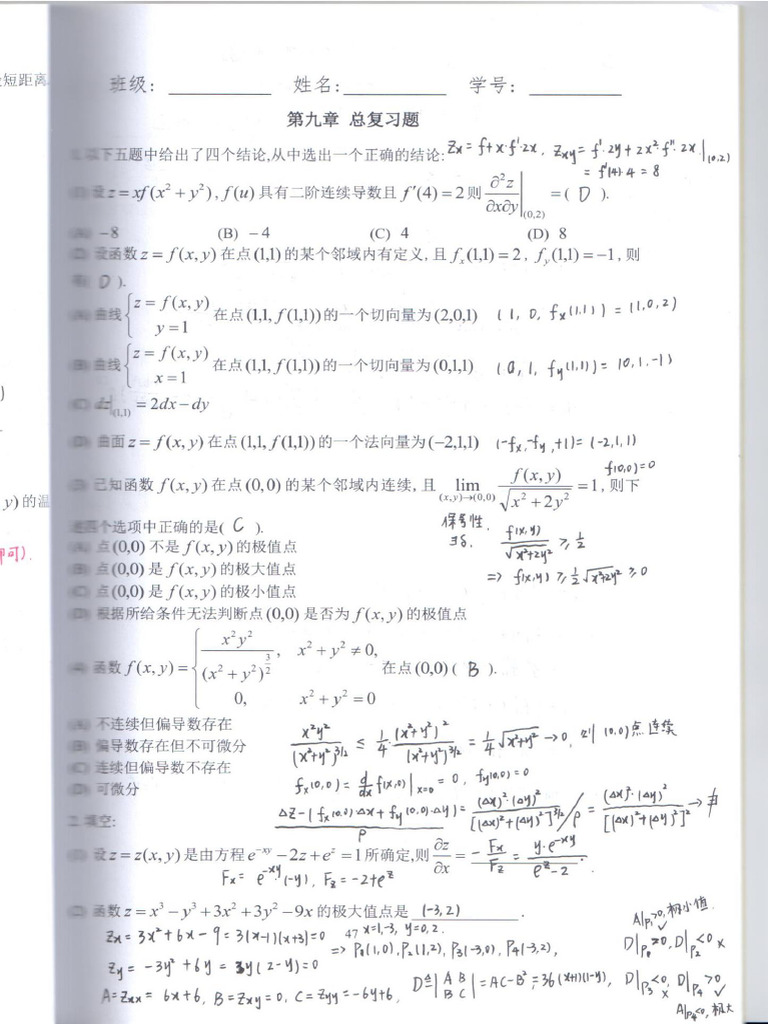 短距离
班级: 姓名: 学号:
第九章 总复习题
以下五题中给出了四个结论,从中选出一个正确的结论: Zx = f+x·f'·2x, Zxy = f'·2y + 2x²f''·2x |(0,2)
= f'(4)·4 = 8
(1) 设 z = xf(x² + y²), f(u) 具有二阶连续导数且 f'(4) = 2 则 ∂²z/∂x∂y |(0,2) = ( D ).
(A) −8 (B) −4 (C) 4 (D) 8
(2) 设函数 z = f(x, y) 在点 (1,1) 的某个邻域内有定义, 且 fx(1,1) = 2, fy(1,1) = −1, 则
有( D ).
(A) 曲线 { z = f(x, y) y = 1 在点 (1,1, f(1,1)) 的一个切向量为 (2,0,1) (1, 0, fx(1,1)) = (1,0,2)
(B) 曲线 { z = f(x, y) x = 1 在点 (1,1, f(1,1)) 的一个切向量为 (0,1,1) (0, 1, fy(1,1)) = (0,1,-1)
(C) dz|(1,1) = 2dx − dy
(D) 曲面 z = f(x, y) 在点 (1,1, f(1,1)) 的一个法向量为 (−2,1,1) (-fx, -fy, +1) = (-2,1,1)
y) 的温
(3) 已知函数 f(x, y) 在点 (0,0) 的某个邻域内连续, 且 lim (x,y)→(0,0) f(x, y)/√(x² + 2y²) = 1, 则下 f(0,0)=0
述四个选项中正确的是( C ). 保号性, ∃δ, f(x,y)/√(x²+2y²) ≥ 1/2
即可).
(A) 点 (0,0) 不是 f(x, y) 的极值点
(B) 点 (0,0) 是 f(x, y) 的极大值点 => f(x,y) ≥ 1/2 √(x²+2y²) ≥ 0
(C) 点 (0,0) 是 f(x, y) 的极小值点
(D) 根据所给条件无法判断点 (0,0) 是否为 f(x, y) 的极值点
(4) 函数 f(x, y) = { x²y²/(x² + y²)^(3/2), x² + y² ≠ 0, 0, x² + y² = 0 在点 (0,0) ( B ).
(A) 不连续但偏导数存在
(B) 偏导数存在但不可微分 x²y²/(x²+y²)^(3/2) ≤ 1/4·(x²+y²)²/(x²+y²)^(3/2) = 1/4 √(x²+y²) → 0, 则 (0,0) 点连续
(C) 连续但偏导数不存在
(D) 可微分 fx(0,0) = d/dx f(x,0)|x=0 = 0, fy(0,0) = 0
Δz-(fx(0,0)·Δx + fy(0,0)·Δy)/ρ = (Δx)²·(Δy)²/[(Δx)²+(Δy)²]^(3/2) /ρ = (Δx)²·(Δy)²/[(Δx)²+(Δy)²]² → ∄
2. 填空:
(1) 设 z = z(x, y) 是由方程 e^(−xy) − 2z + e^z = 1 所确定,则 ∂z/∂x = -Fx/Fz = y·e^(-xy)/(e^z-2) .
Fx = e^(-xy)·(-y), Fz = -2+e^z
(2) 函数 z = x³ − y³ + 3x² + 3y² − 9x 的极大值点是 (-3,2) .
47
Zx = 3x²+6x-9 = 3(x-1)(x+3)=0 x=1,-3, y=0,2.
Zy = -3y²+6y = 3y(2-y)=0 => P₁(1,0), P₂(1,2), P₃(-3,0), P₄(-3,2),
A=Zxx = 6x+6, B=Zxy=0, C=Zyy=-6y+6, D≜|A B B C| = AC-B² = 36(x+1)(1-y),
A|P₁>0, 极小值.
D|P₁>0, D|P₂<0 ×
D|P₃<0 ×, D|P₄>0
A|P₄<0, 极大